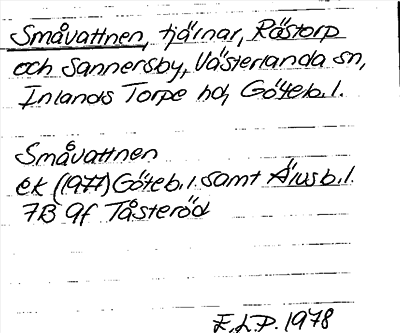 Småvattnen, tjärnar, Råstorp
och Sannersby, Västerlanda sn,
Inlands Torpe hd, Göteb. l.
Småvattnen
ek (1977) Göteb. l. samt Älvsb. l.
7B 9f Tåsteröd
E.L.P. 1978